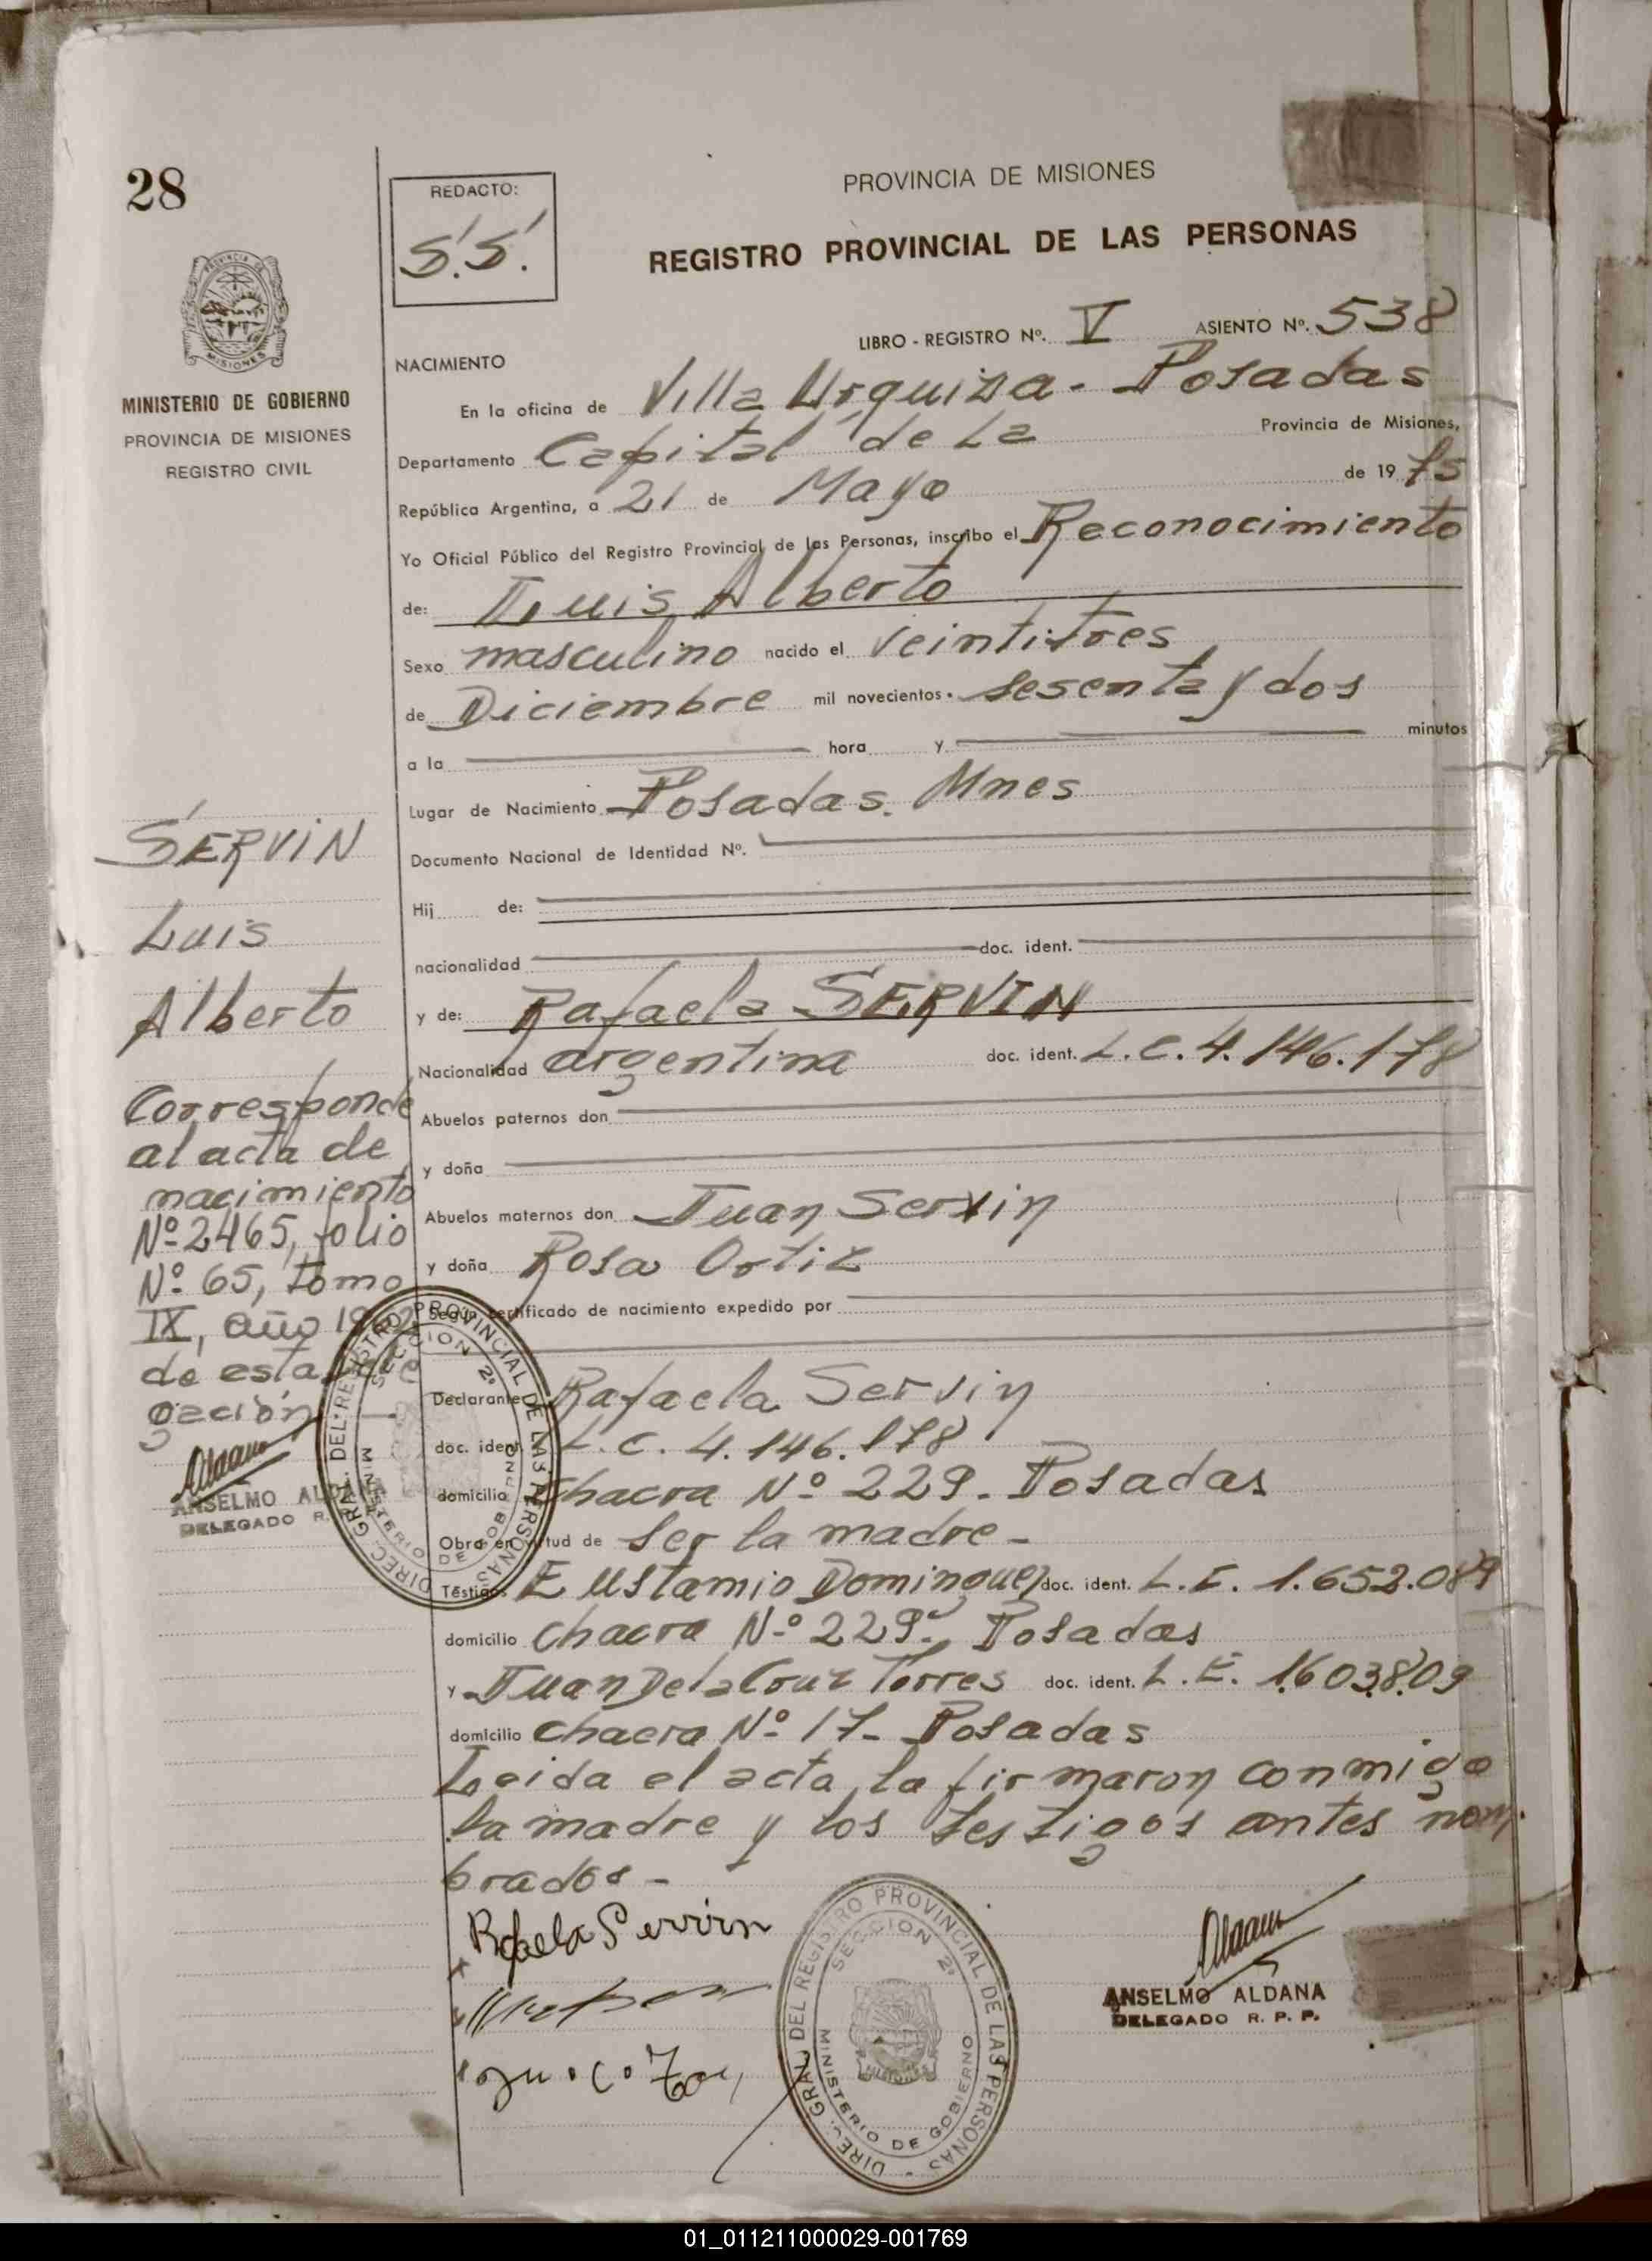 28
REDACTO:
S.S.
PROVINCIA DE MISIONES
REGISTRO PROVINCIAL DE LAS PERSONAS
PROVINCIA DE
MISIONES
MINISTERIO DE GOBIERNO
PROVINCIA DE MISIONES
REGISTRO CIVIL
LIBRO - REGISTRO Nº. V ASIENTO Nº. 538
NACIMIENTO
En la oficina de Villa Urquiza - Posadas
Departamento Capital de La Provincia de Misiones,
República Argentina, a 21 de Mayo de 19 75
Yo Oficial Público del Registro Provincial de las Personas, inscribo el Reconocimiento
de: Luis Alberto
Sexo masculino nacido el veintitres
de Diciembre mil novecientos sesenta y dos
a la hora y minutos
Lugar de Nacimiento Posadas. Mnes
Documento Nacional de Identidad Nº.
Hij de:
nacionalidad doc. ident.
y de: Rafaela SERVIN
Nacionalidad argentina doc. ident. L.C. 4.146.178
Abuelos paternos don
y doña
Abuelos maternos don Juan Servin
y doña Rosa Ortiz
Según certificado de nacimiento expedido por
Declarante Rafaela Servin
doc. ident. L.C. 4.146.178
domicilio Chacra Nº 229. Posadas
Obra en virtud de ser la madre -
Testigos Eustamio Dominguez doc. ident. L.E. 1.652.089
domicilio chacra Nº 229. Posadas
y Juan De la Cruz Torres doc. ident. L.E. 1603809
domicilio chacra Nº 17 - Posadas
Leida el acta, la firmaron conmigo
la madre y los testigos antes nom-
brados -
SERVIN
Luis
Alberto
Corresponde
al acta de
nacimiento
Nº 2465, folio
Nº 65, tomo
IX, año 1962
de esta Dele
gación
ANSELMO ALDANA
DELEGADO R.
DIREC. GRAL. DEL REGISTRO PROVINCIAL DE LAS PERSONAS
SECCION 2º
MINISTERIO DE GOBIERNO
Rafaela Servin
DIREC. GRAL. DEL REGISTRO PROVINCIAL DE LAS PERSONAS
SECCION 2º
MISIONES
MINISTERIO DE GOBIERNO
ANSELMO ALDANA
DELEGADO R. P. P.
01_011211000029-001769